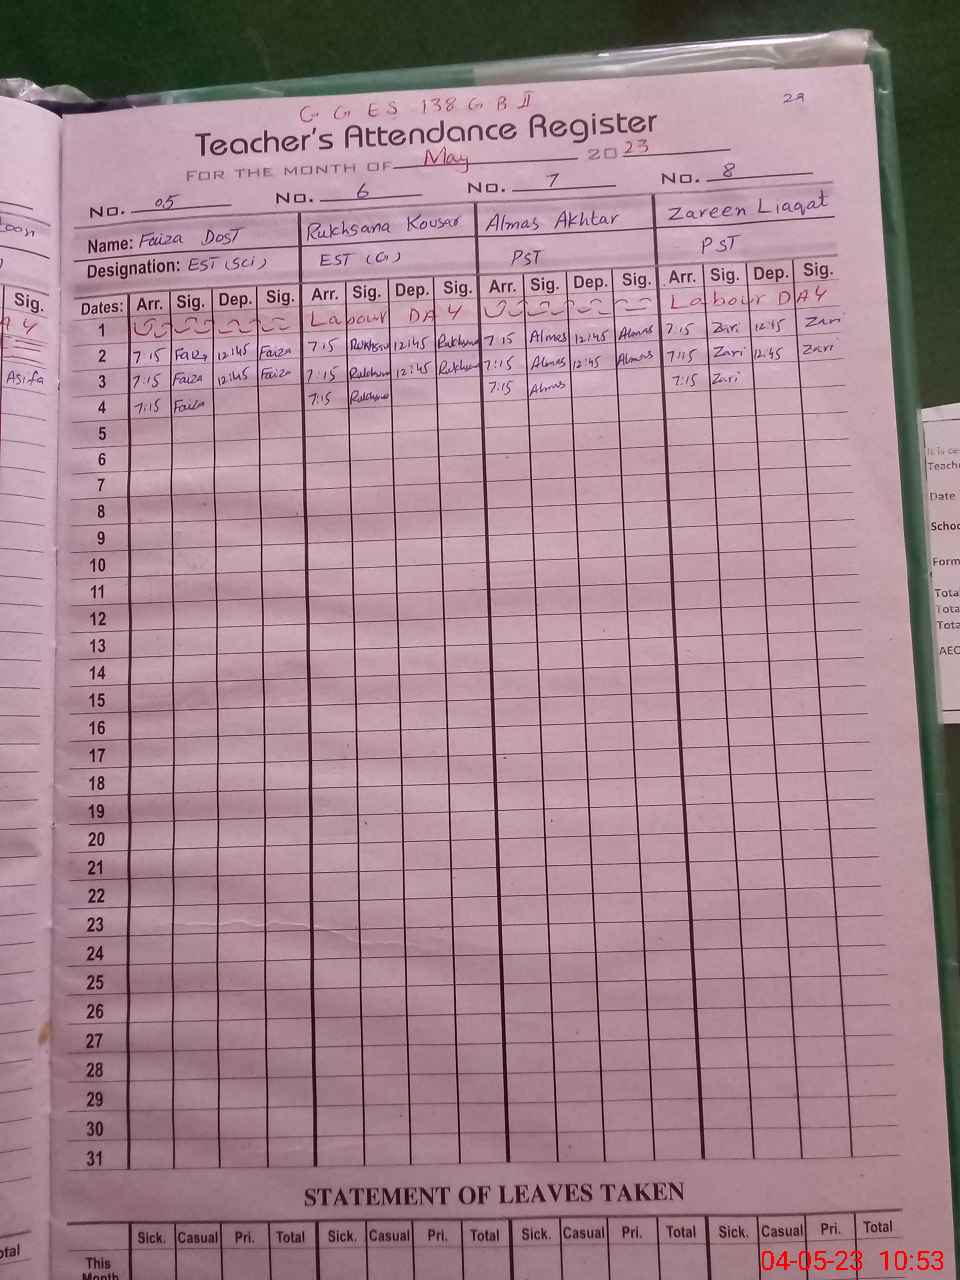 G G E S 138 G B II
29
Teacher's Attendance Register
FOR THE MONTH OF May 2023
No. 05 No. 6 No. 7 No. 8
Name: Faiza Dost Rukhsana Kousar Almas Akhtar Zareen Liaqat
Designation: EST (Sci) EST (G) PST PST
Dates: Arr. Sig. Dep. Sig. Arr. Sig. Dep. Sig. Arr. Sig. Dep. Sig. Arr. Sig. Dep. Sig.
1 Labour DAY Labour DAY
2 7:15 Faiza 12:45 Faiza 7:15 Rukhsana 12:45 Rukhsana 7:15 Almas 12:45 Almas 7:15 Zari 12:45 Zari
3 7:15 Faiza 12:45 Faiza 7:15 Rukhsana 12:45 Rukhsana 7:15 Almas 12:45 Almas 7:15 Zari 12:45 Zari
4 7:15 Faiza 7:15 Rukhsana 7:15 Almas 7:15 Zari
5
6
7
8
9
10
11
12
13
14
15
16
17
18
19
20
21
22
23
24
25
26
27
28
29
30
31
STATEMENT OF LEAVES TAKEN
Sick. Casual Pri. Total Sick. Casual Pri. Total Sick. Casual Pri. Total Sick. Casual Pri. Total
This
Month
Sig.
Asifa
It is ce
Date
Form
AEO
04-05-23 10:53